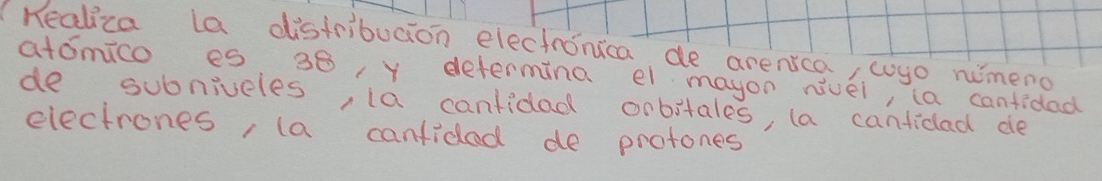 Realiza la distribución electrónica de arenica, cuyo número
atómico es 38, y determina el mayor nivel, la cantidad
de subniveles, la cantidad orbitales, la cantidad de
electrones, la cantidad de protones